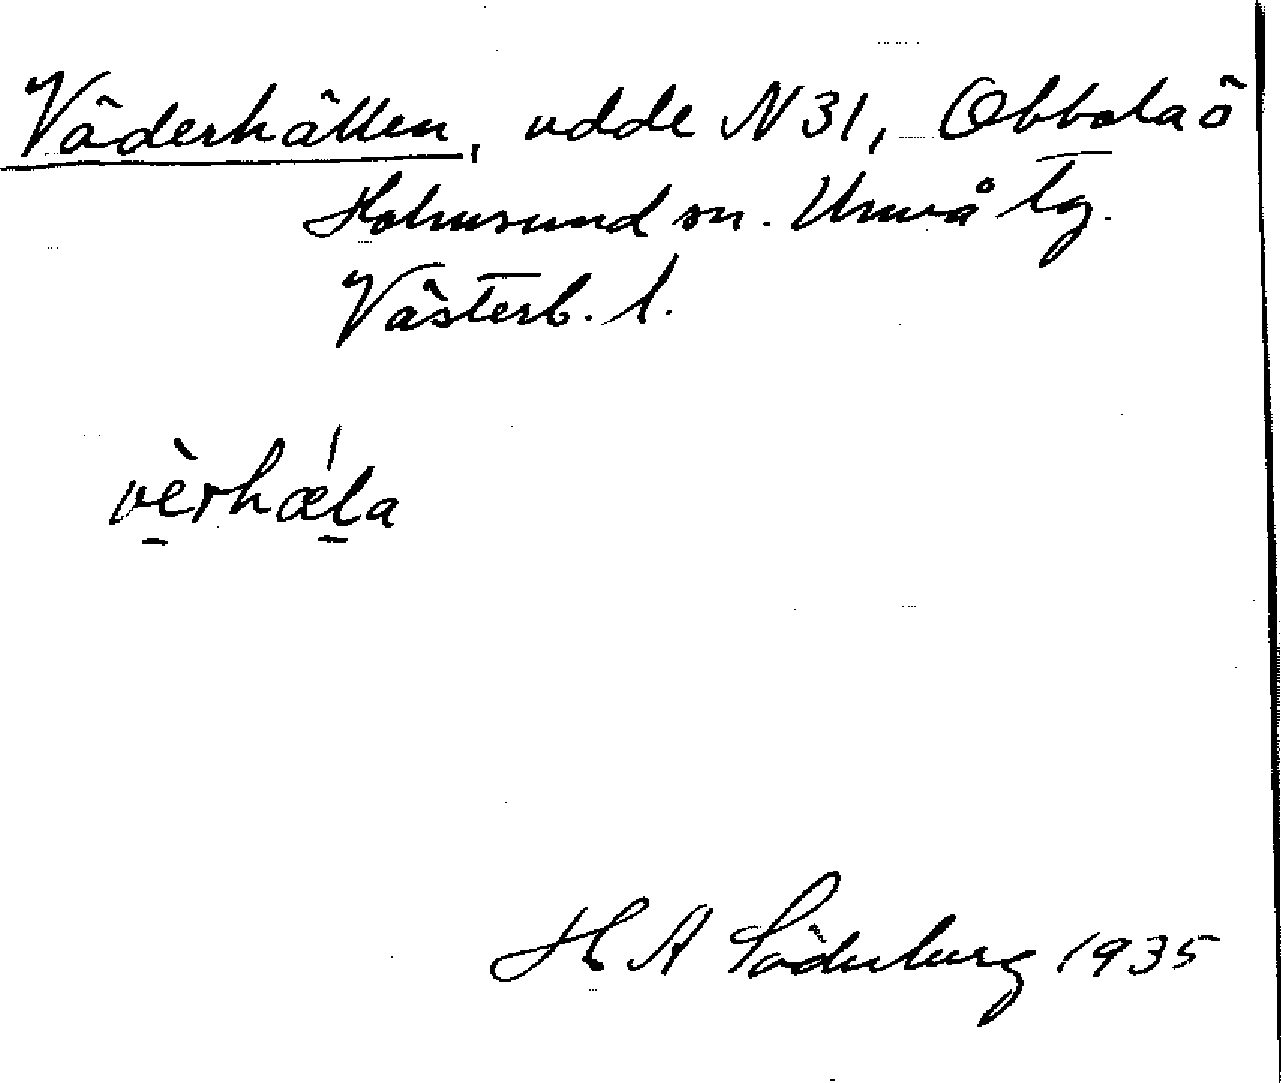 Väderhällen, udde N 31, Obbolaö
Holmsund sn. Umeå tg.
Västerb. l.
vèrhæ̀la
H A Söderberg 1935